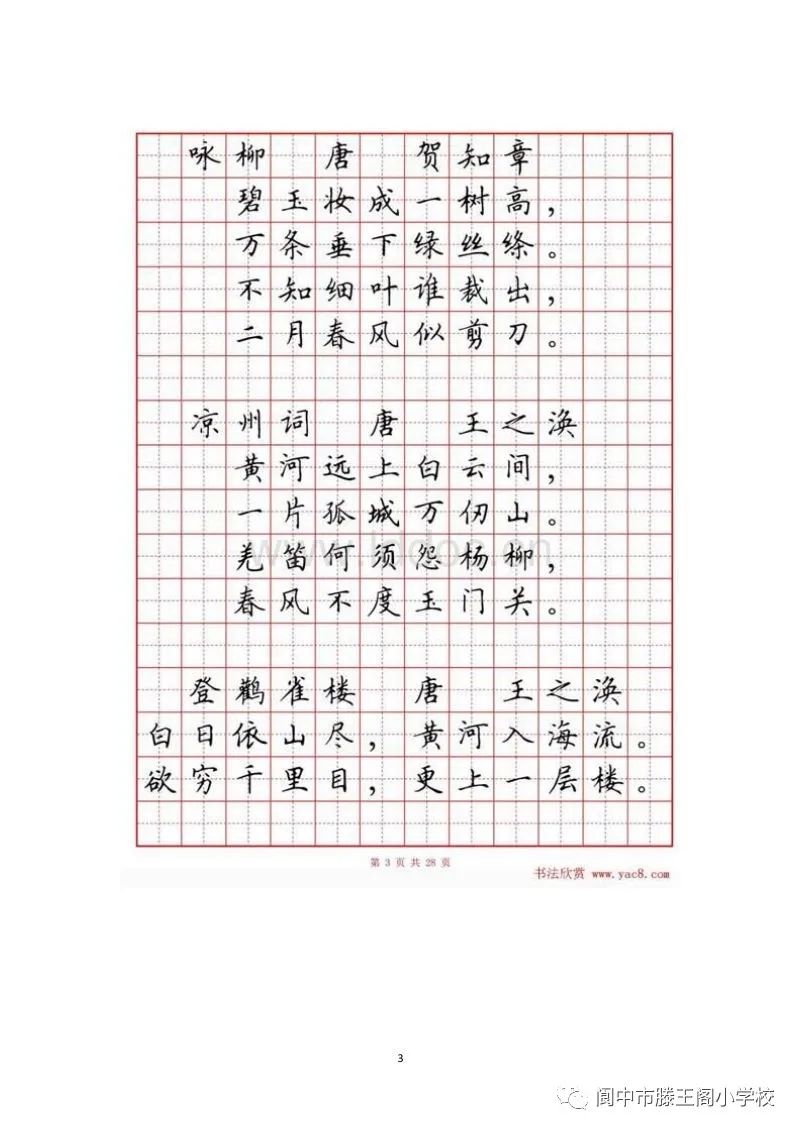 咏柳 唐 贺知章
碧玉妆成一树高，
万条垂下绿丝绦。
不知细叶谁裁出，
二月春风似剪刀。
凉州词 唐 王之涣
黄河远上白云间，
一片孤城万仞山。
羌笛何须怨杨柳，
春风不度玉门关。
登鹳雀楼 唐 王之涣
白日依山尽，黄河入海流。
欲穷千里目，更上一层楼。
第 3 页 共 28 页
书法欣赏 www.yac8.com
3
阆中市滕王阁小学校